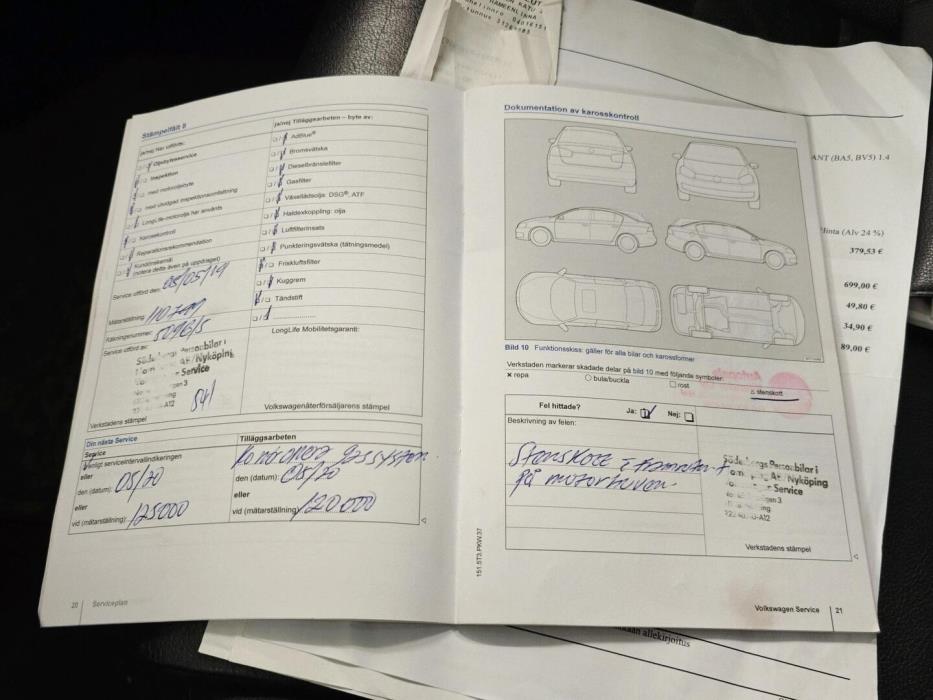 HÄMEENLINNA
04016151
Stämpelfält 8
ja/nej Har utförts:
Oljebytesservice
Inspektion
med motoroljebyte
med utvidgad inspektionsomfattning
LongLife-motorolja har använts
Karosskontroll
Reparationsrekommendation
Kundönskemål
(notera detta även på uppdraget)
Service utförd den: 08/05/19
Mätarställning:
Räkningsnummer: 509615
Service utförd av:
Personbilar i
Nyköping
Service
541
Verkstadens stämpel
ja/nej Tilläggsarbeten – byte av:
AdBlue®
Bromsvätska
Dieselbränslefilter
Gasfilter
Växellådsolja: DSG®, ATF
Haldexkoppling: olja
Luftfilterinsats
Punkteringsvätska (tätningsmedel)
Friskluftsfilter
Kuggrem
Tändstift
LongLife Mobilitetsgaranti:
Volkswagenåterförsäljarens stämpel
Din nästa Service
Service
Enligt serviceintervallindikeringen
eller
den (datum): 05/20
eller
vid (mätarställning): 125000
Tilläggsarbeten
gassystem.
den (datum): 05/20
eller
vid (mätarställning): 120000
20 Serviceplan
Dokumentation av karosskontroll
Bild 10 Funktionsskiss: gäller för alla bilar och karossformer
Verkstaden markerar skadade delar på bild 10 med följande symboler:
× repa
○ bula/buckla
□ rost
△ stenskott
Fel hittade?
Ja:
Nej:
Beskrivning av felen:
Stenskott i framkant
på motorhuven.
Personbilar i
Nyköping
Service
Verkstadens stämpel
151.5T3.PKW.37
Volkswagen Service 21
ANT (BA5, BV5) 1.4
Hinta (Alv 24 %)
379,53 €
699,00 €
49,80 €
34,90 €
89,00 €
allekirjoitus